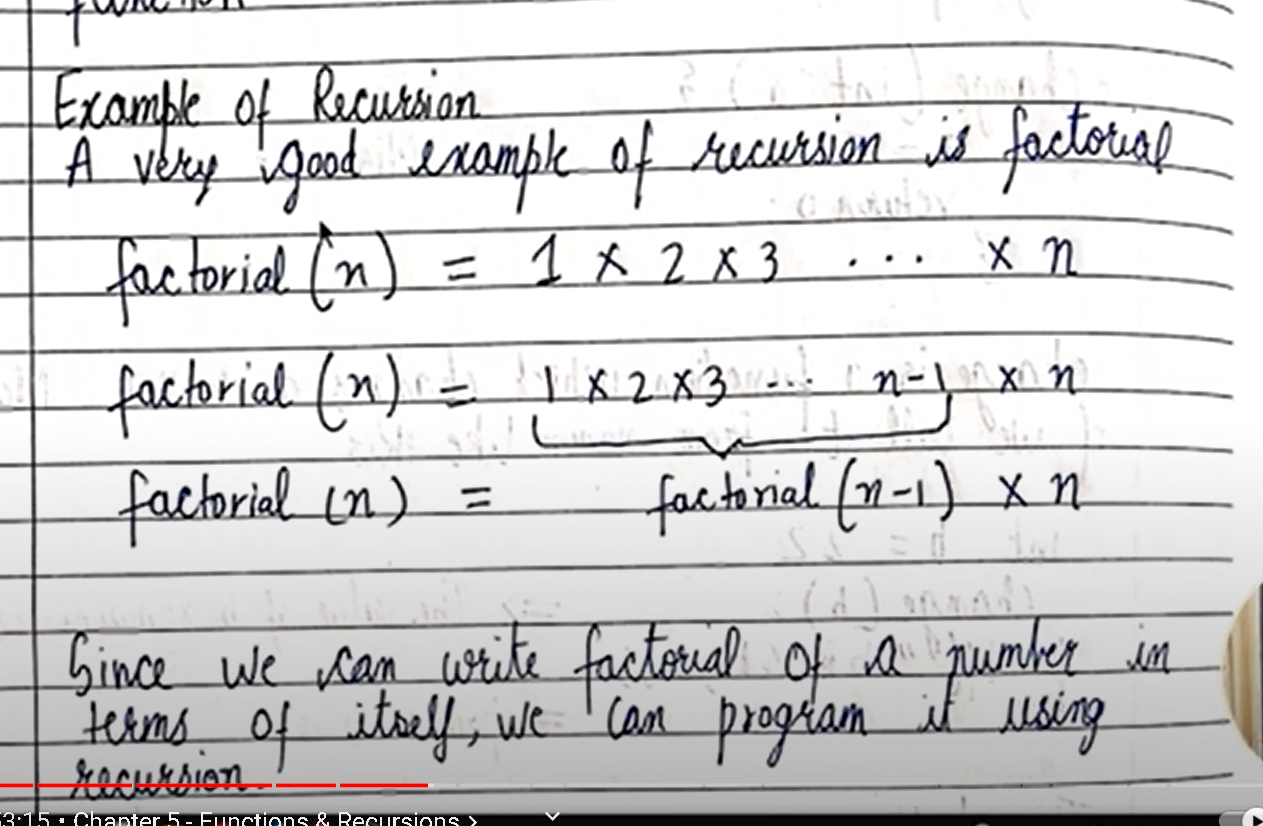 function
Example of Recursion
A very good example of recursion is factorial
factorial (n) = 1 × 2 × 3 ... × n
factorial (n) = 1 × 2 × 3 ... n-1 × n
factorial (n) = factorial (n-1) × n
Since we can write factorial of a number in
terms of itself, we can program it using
recursion.
3:15 • Chapter 5 - Functions & Recursions >